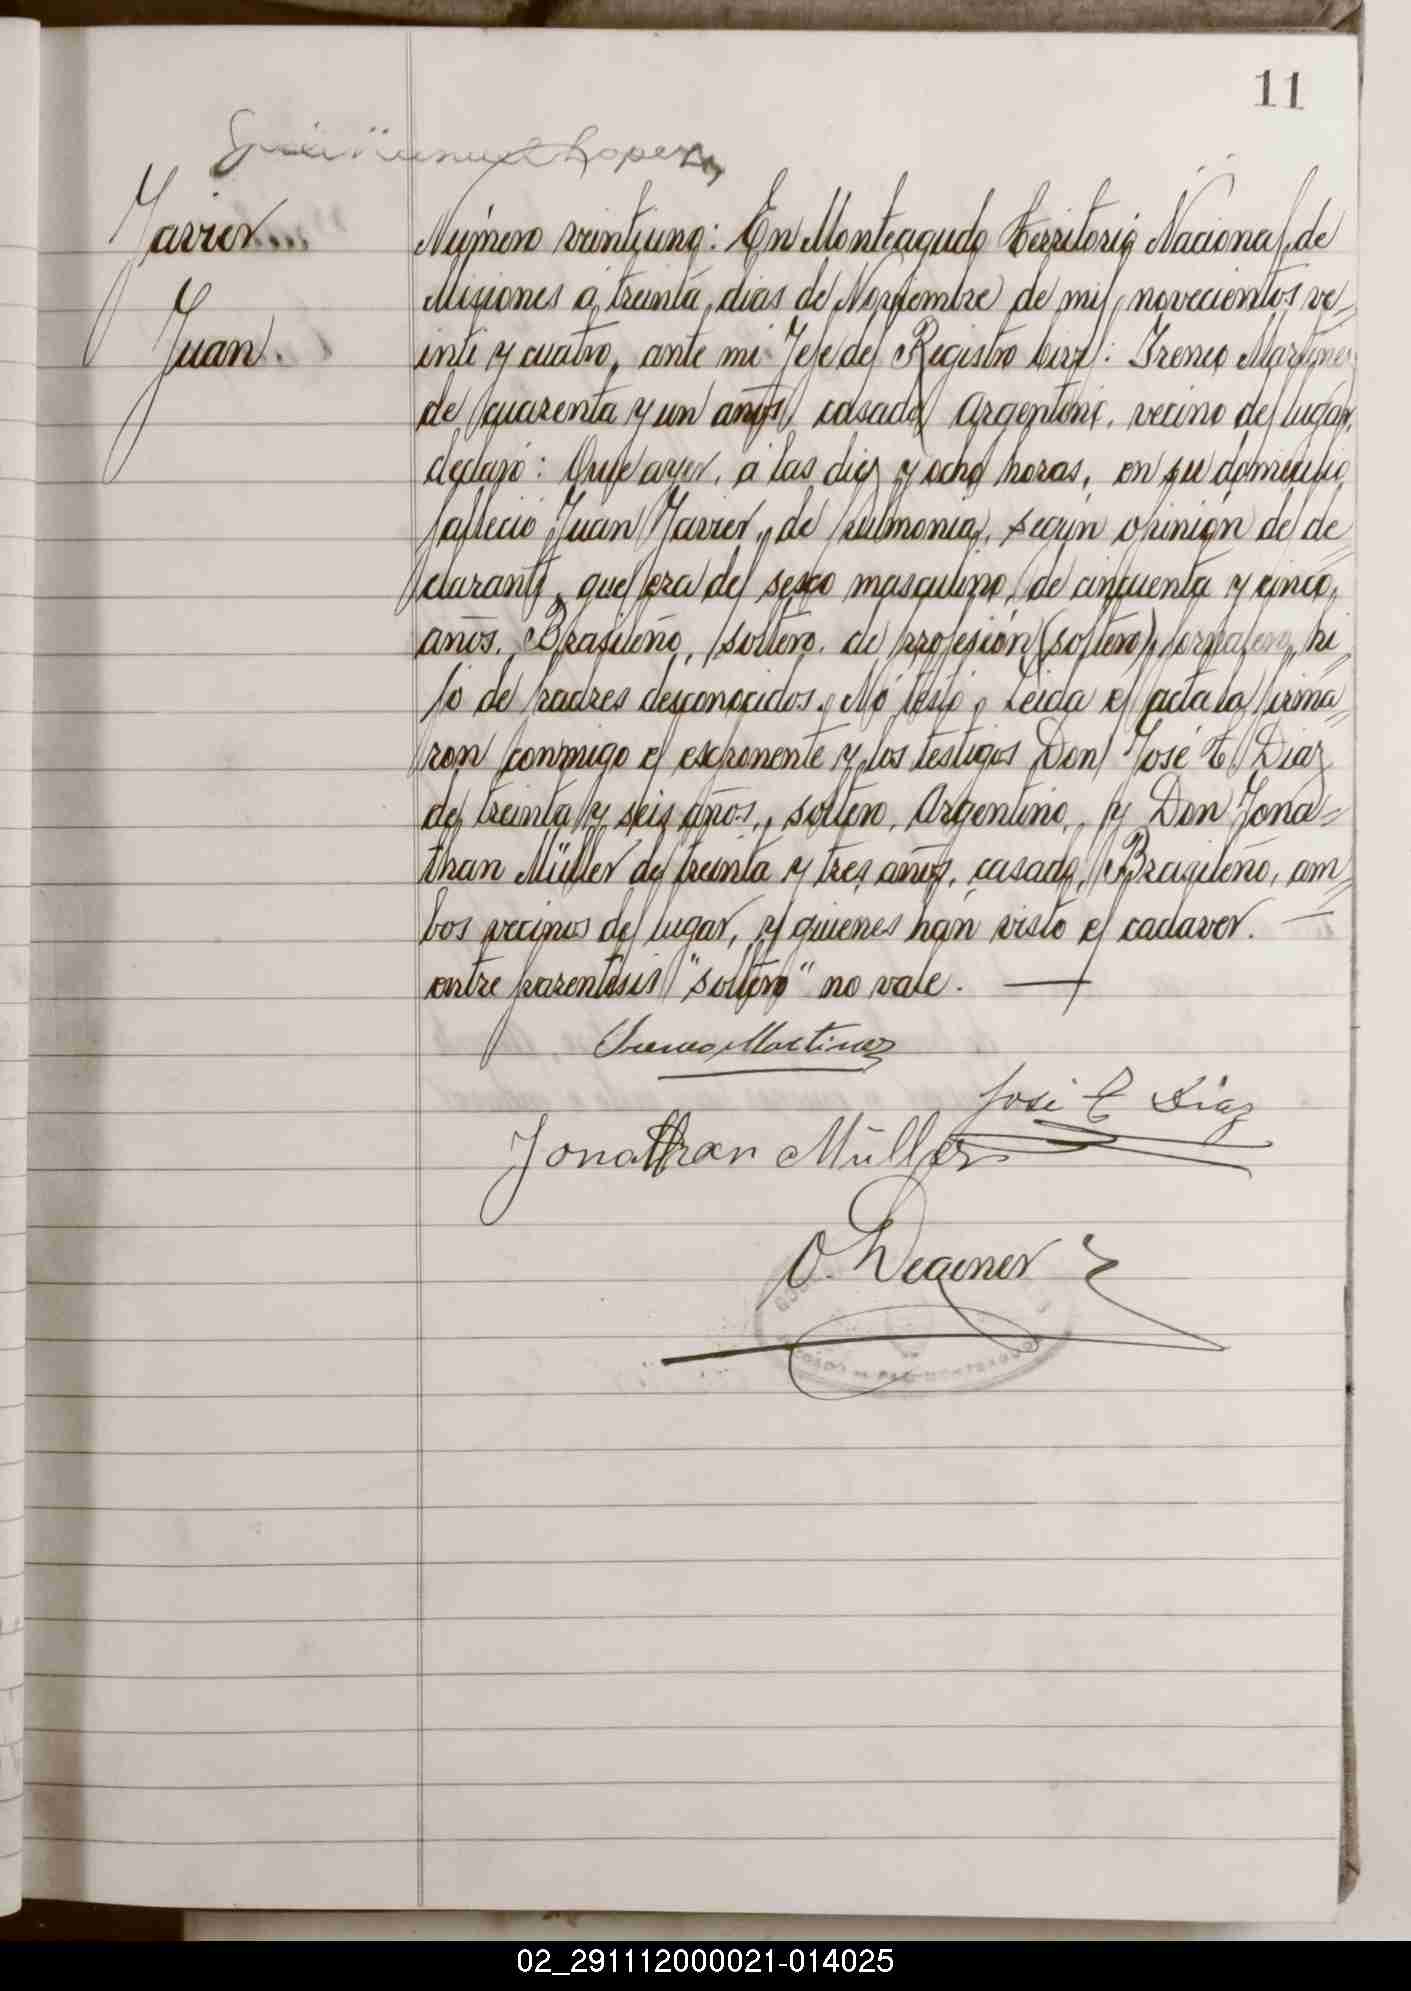 11
Lopez
Javier
Juan.
Número veintiuno: En Monteagudo Territorio Nacional de
Misiones á treinta dias de Noviembre de mil novecientos ve=
inte y cuatro, ante mi Jefe del Registro Civil: Ireneo Martinez
de cuarenta y un años, casado, Argentino, vecino del lugar,
declaró: Que ayer, á las diez y ocho horas, en su domicilio
falleció Juan Javier, de pulmonia, según opinión del de=
clarante, que era del sexo masculino, de cincuenta y cinco,
años, Brasileño, soltero, de profesión (soltero), jornalero, hi=
jo de padres desconocidos. No testó, Leida el acta la firma=
ron conmigo el exponente y los testigos Don José E Diaz
de treinta y seis años, soltero, Argentino, y Don Jona=
than Müller de treinta y tres años, casado, Brasileño, am=
bos vecinos del lugar, y quienes hán visto el cadaver. —
entre parentesis "soltero" no vale. —
Ireneo Martinez
José E Diaz
Jonathan Müller
O. Degener
02_291112000021-014025